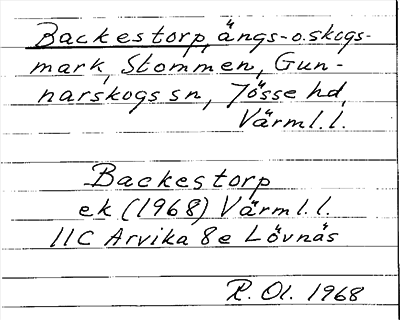 Backestorp, ängs- o. skogs-
mark, Stommen, Gun-
narskogs sn, Jösse hd,
Värml. l.
Backestorp
ek (1968) Värml. l.
11C Arvika 8e Lövnäs
R. Ol. 1968